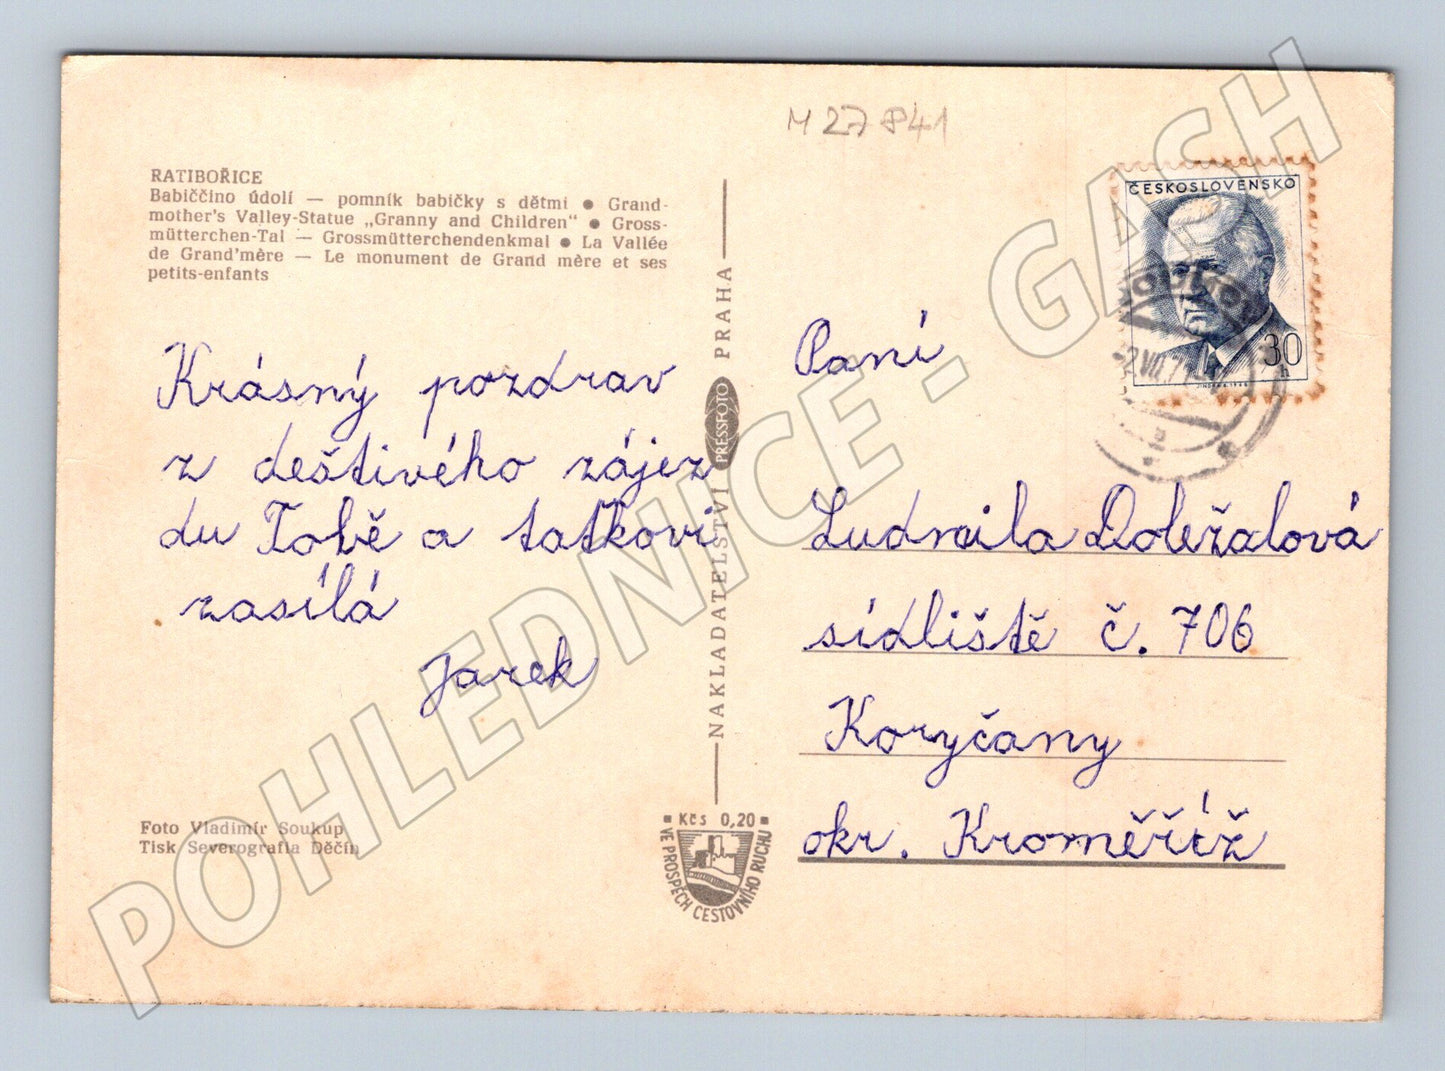 M 27 841
RATIBOŘICE
Babiččino údolí — pomník babičky s dětmi ● Grand-
mother's Valley-Statue „Granny and Children" ● Gross-
mütterchen-Tal — Grossmütterchendenkmal ● La Vallée
de Grand'mère — Le monument de Grand mère et ses
petits-enfants
Krásný pozdrav
z deštivého zájez
du Tobě a taťkovi
zasílá
Jarek
Foto Vladimír Soukup
Tisk Severografia Děčín
NAKLADATELSTVÍ PRESSFOTO PRAHA
Kčs 0,20
VE PROSPĚCH CESTOVNÍHO RUCHU
ČESKOSLOVENSKO
30
h
Paní
Ludmila Doležalová
sídliště č. 706
Koryčany
okr. Kroměříž
POHLEDNICE - GASH